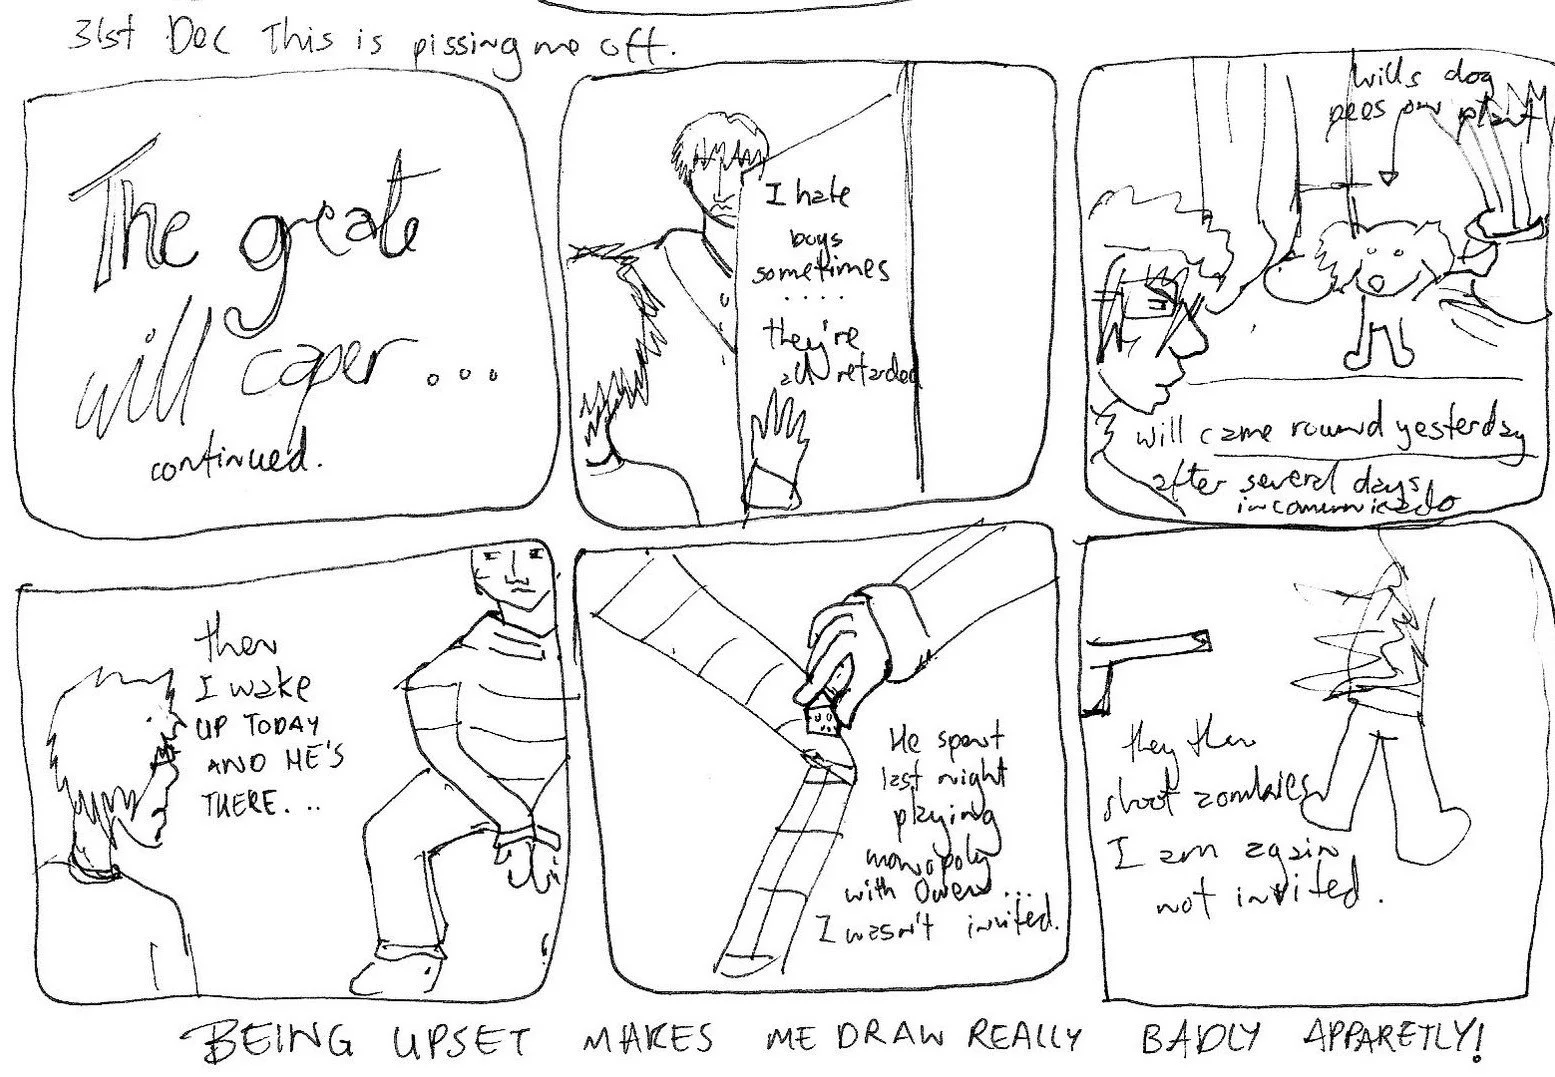 31st Dec This is pissing me off.
The great
will caper...
continued.
I hate
boys
sometimes
....
they're
all retarded
Wills dog
pees on plant
will came round yesterday
after several days
incomunicado
then
I wake
UP TODAY
AND HE'S
THERE...
He spent
last night
playing
monopoly
with Owen...
I wasn't invited.
they then
shoot zombies
I am again
not invited.
BEING UPSET MAKES ME DRAW REALLY BADLY APPARETLY!